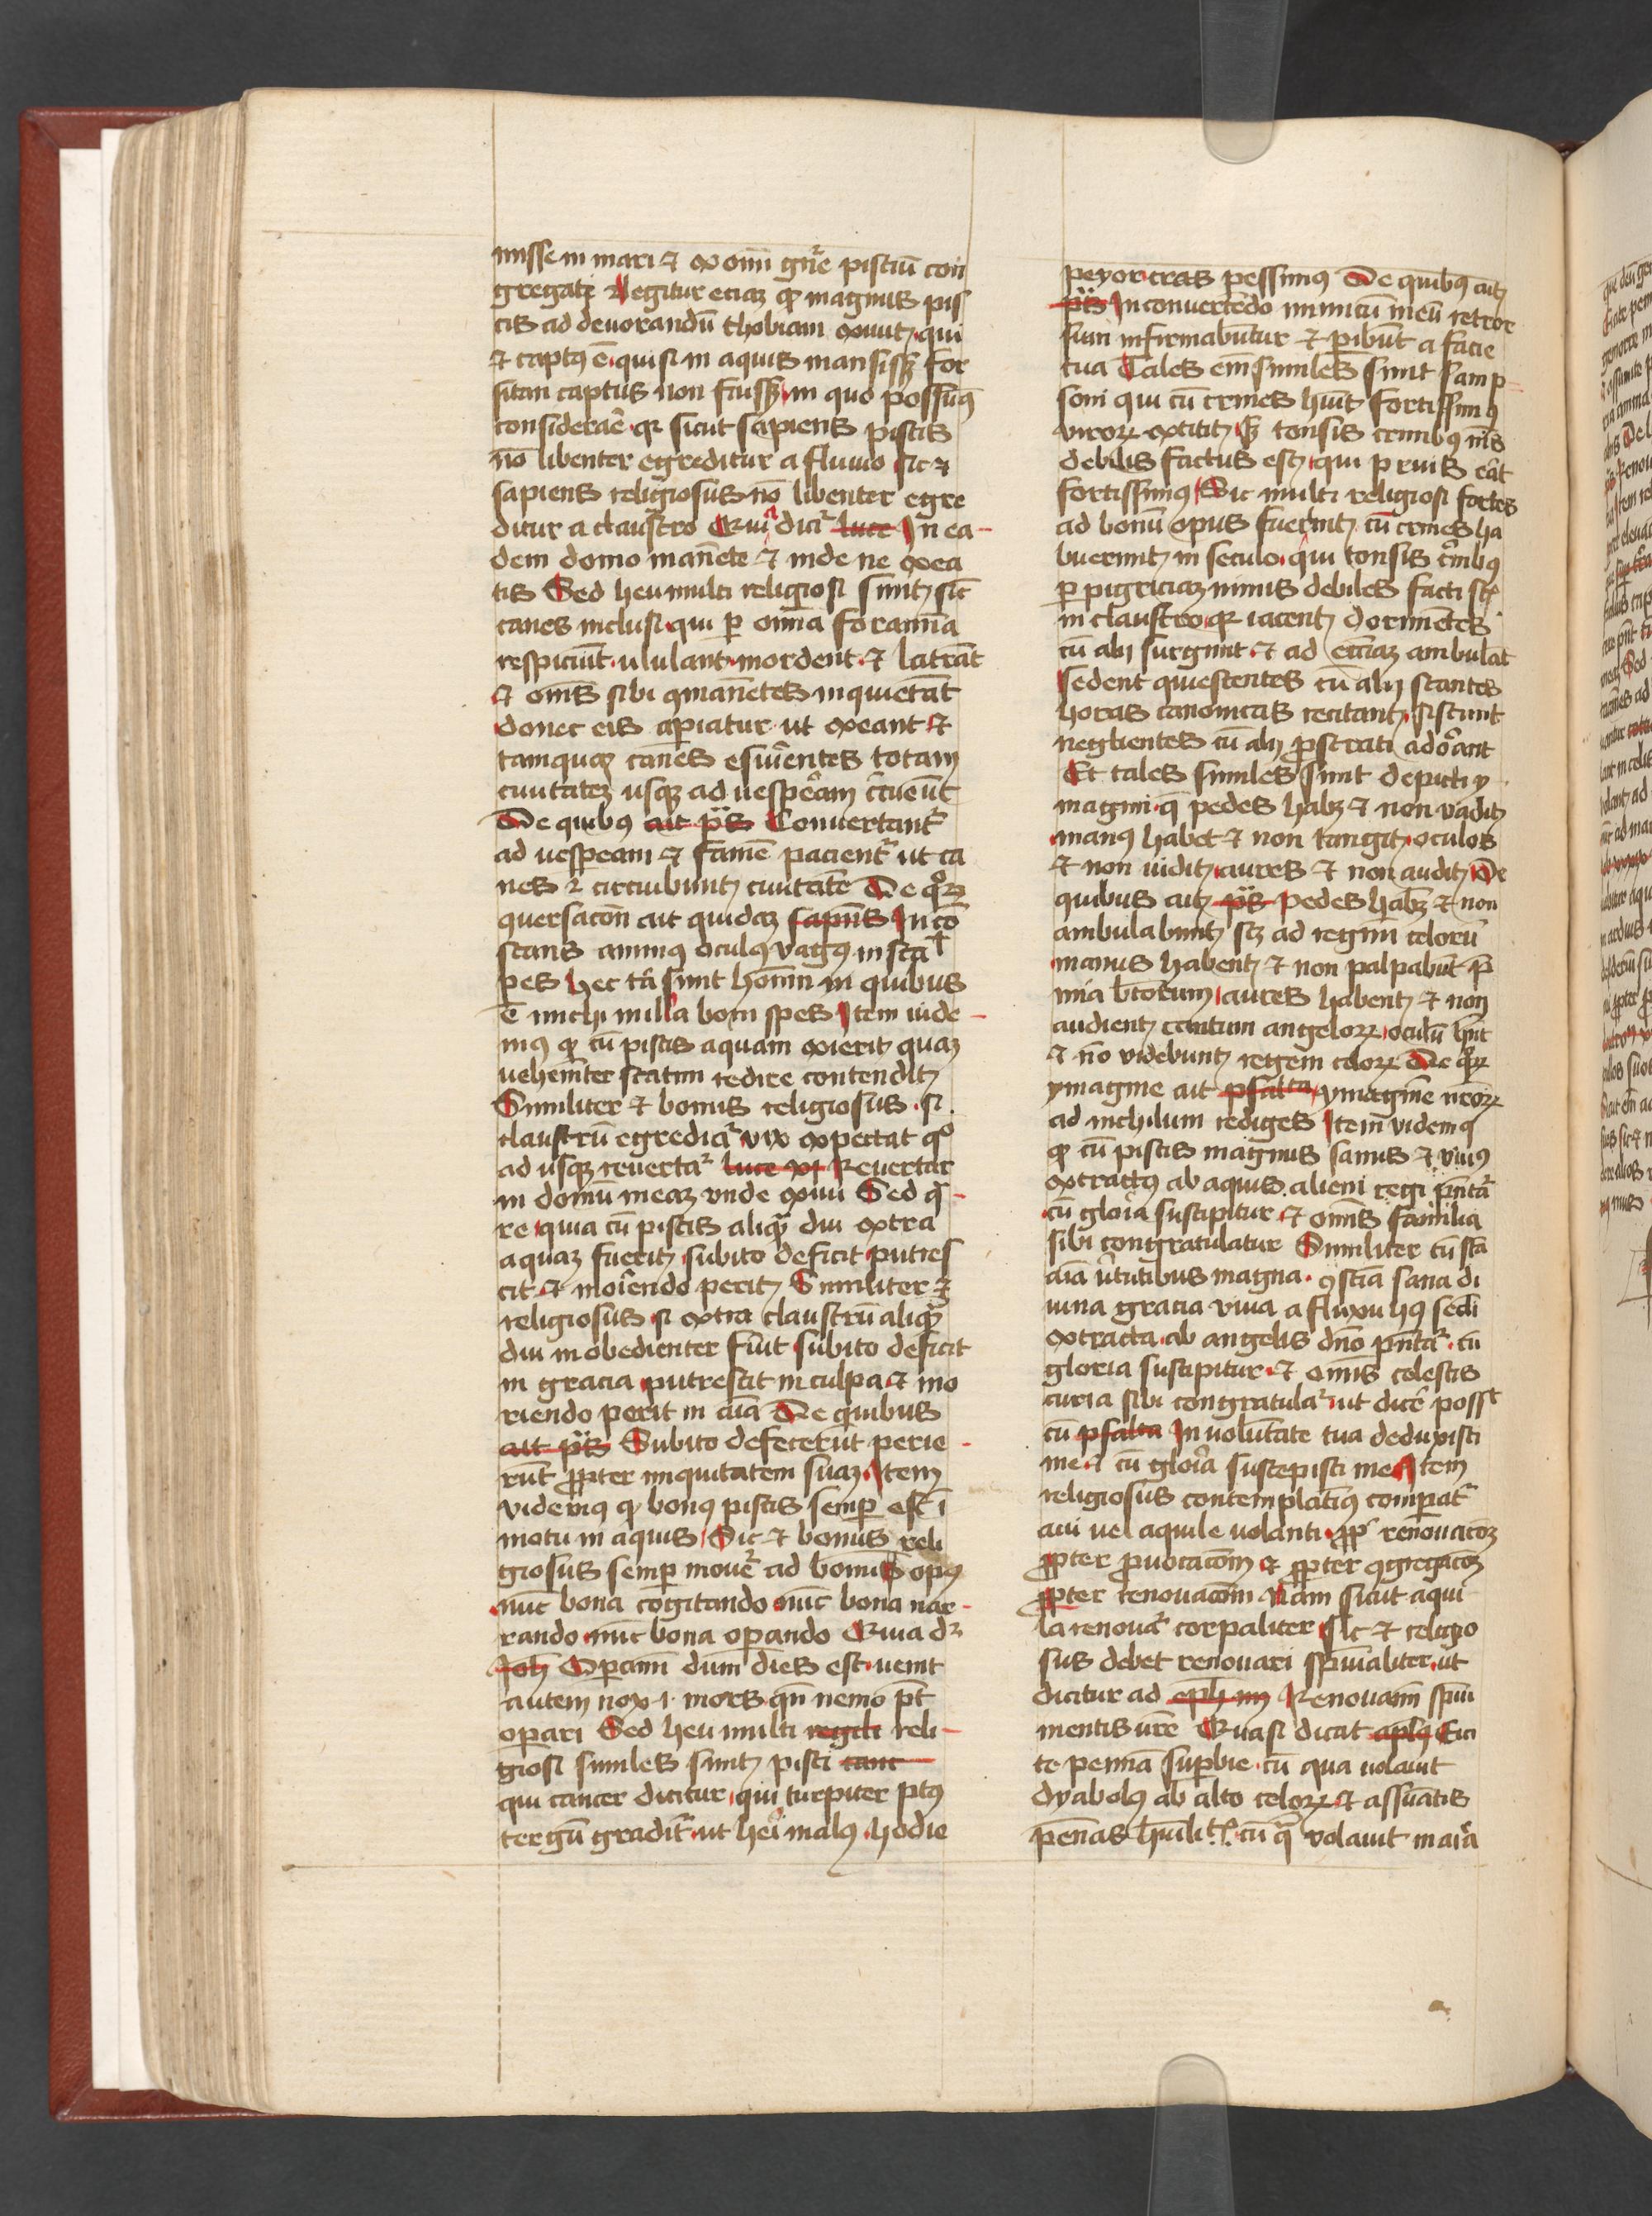 misse in mari et ex omni gn̄e pisciū con
gregati Legitur eciaz qꝫ magnus pis
cis ad deuorandū thobiam exiuit qui
et captꝰ ē qui si in aquis mansissꝫ for
sitan captus non fuissꝫ in quo possumꝰ
considerare qꝛ sicut sapiens piscis
nō libenter egreditur a fluuio sic et
sapiens religiosus nō libenter egre
ditur a claustro Quia dicit luce In ea
dem domo manēte et inde ne exea
tis Sed heu multi religiosi sunt sic
canes inclusi qui ꝑ omnia foramina
respiciūt ululant mordent et latrāt
et omēs sibi ꝯmanētes inquietāt
donec eis apiatur ut exeant et
tamquaꝫ canes esurientes totam
ciuitateꝫ usqꝫ ad uesperam circueūt
De quibꝰ ait ps Conuertantur
ad uesperam et famē pacientur ut ca
nes et circuibunt ciuitatē De quoꝝ
ꝯuersacōn ait quidaꝫ sapiēs In cō
stans animꝰ oculꝰ vagꝰ insta
pes hec tā sunt homin in quibus
ē michi nulla boni spes Item uide
mꝰ qꝫ cū piscis aquam exierit quaꝫ
uehemēter statim redire contendit
Similiter et bonus religiosus si
claustrū egreditur vix expectat qͦ
ad usqꝫ reuertatur luce xi Reuertar
in domū meaꝫ vnde exiui Sed qua
re quia cū piscis aliqꝫ diu extra
aquaꝫ fuerit subito deficit putres
cit et moriendo perit Similiter et
religiosus si extra claustrū aliqꝫ
diu inobedienter fuit subito deficit
in gracia putrescit in culpa et mo
riendo perit in aīa De quibus
ait ps Subito defecerūt perie
rūt ꝓpter iniquitatem suaꝫ Item
videmꝰ qꝫ bonꝰ piscis semper est ī
motu in aquis Sic et bonus reli
giosus semꝑ mouetur ad bonum opꝰ
nūc bona cogitando nūc bona nar
rando nūc bona operando Quia dr
Joh Operamī dum dies est uenit
autem nox .i. mors qn nemo pt
operari Sed heu multi regili reli
giosi similes sunt pisci canc
qui cancer dicitur qui turpiter ptꝰ
tergū graditur ut heri malꝰ hodie
peyor cras pessimꝰ De quibꝰ ait
ps In conuertēdo inimicū meū retror
sum infirmabūtur et peribūt a facie
tua Tales em̄ similes sunt samp
soni qui cū crines huit fortissimꝰ
viroꝝ extitit sꝫ tonsis crinibꝰ nīs
debilis factus est qui pruis erat
fortissimꝰ Sic multi religiosi fortes
ad bonū opus fuerūt cū crines ha
buerunt in seculo qui tonsis crinibꝰ
ꝑ pigriciaꝫ nimis debiles facti st
in claustro qꝛ iacent dormiētes
cū alij surgunt et ad ecciaꝫ ambulāt
sedent quiescentes cū alij stantes
horas canonicas recitant sistunt
negligentes cū alij ꝓstrati adorant
Et tales similes sunt depicti y
magini q̄ pedes habꝫ et non vadit
manꝰ habet et non tangit oculos
et non uidit aures et non audit De
quibus ait ps Pedes habꝫ et non
ambulabunt scꝫ ad regnū celorū
manus habent et non palpabūt p̄
mia bt̄orum aures habent et non
audient cantum angeloꝝ oculū hn̄t
et nō videbunt regem celoꝝ De qͦꝝ
ymagine ait psalta ymaginē ip̄oꝝ
ad nichilum rediges Item videmꝰ
qꝫ cū piscis magnus sanus et viuꝰ
extractꝰ ab aquis alicui regi pn̄tatur
cū gloria suscipitur et omis familia
sibi congratulatur Similiter cū sc̄a
aīa v̄tutibus magna ꝯsciā sana di
uina gracia viua a fluxu hꝰ sc̄li
extracta ab angelis dn̄o pn̄tatur cū
gloria suscipitur et omis celestis
curia sibi congratulatur ut dicere posset
cū psalta In volūtate tua deduxisti
me et cū gloria suscepisti me Item
religiosus contemplatiuꝰ comparatur
aui uel aquile uolanti ꝓpter renouacoꝫ
ꝓpter ꝓuocacōm et ꝓpter ꝯgregacoꝫ
ꝓpter renouacōm Nam sicut aqui
la renouatur corꝑaliter sic et religio
sus debet renouari spūaliter ut
dicitur ad eph iiij Renouamī spiū
mentis vrē Quasi dicat apls Eici
te pennā suꝑbie cū qua uolauit
dyabolꝰ ab alto celoꝝ et assumatis
pēnas humilit cū q̄ volauit maria